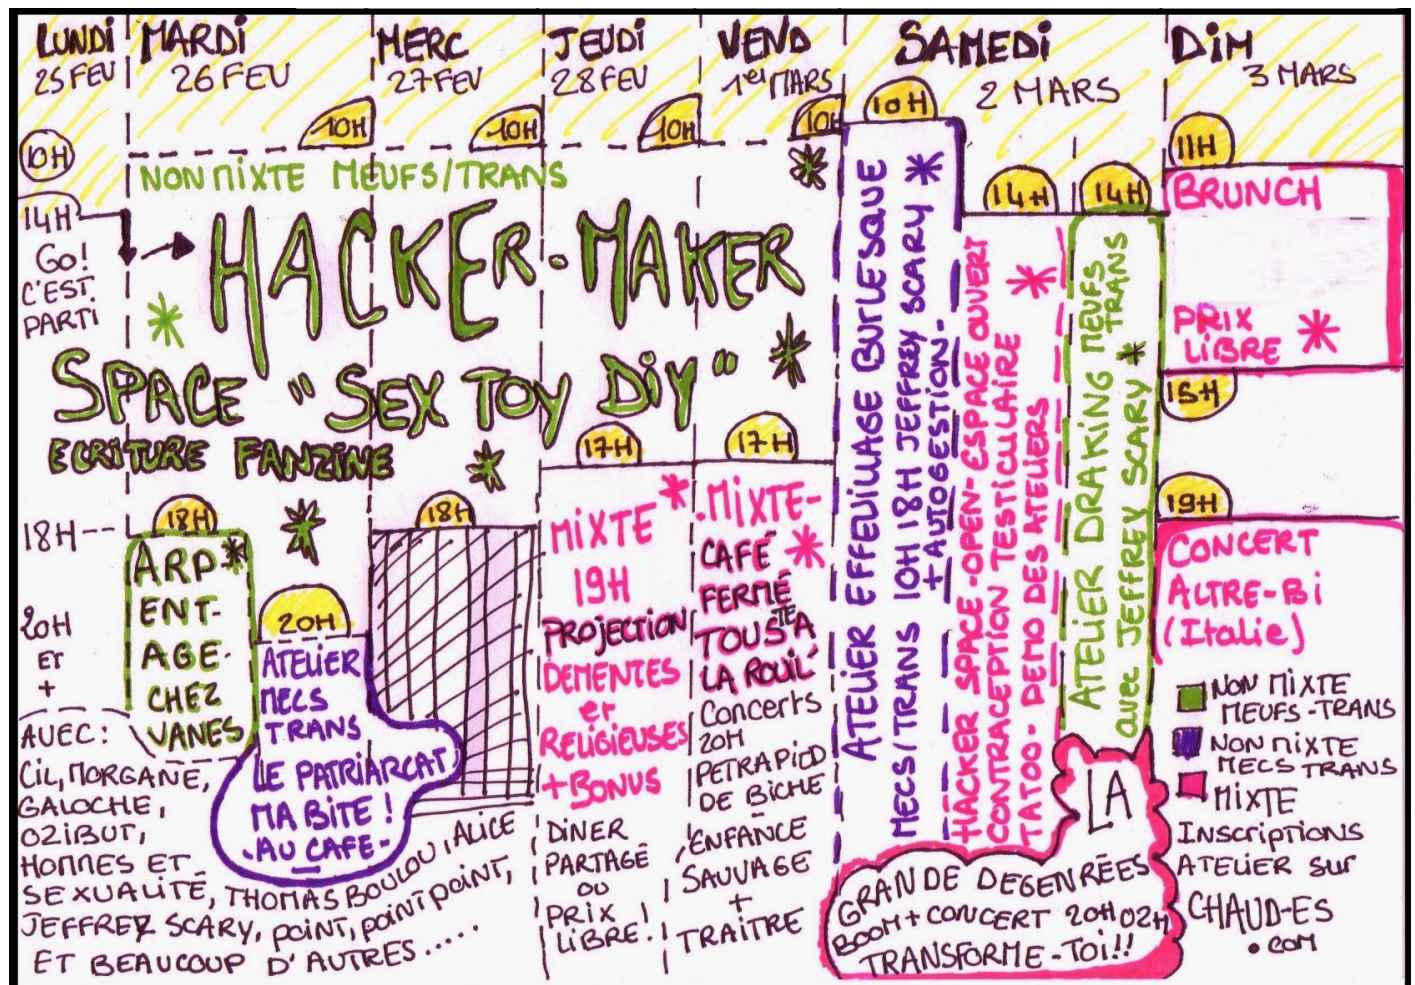 LUNDI
25 FEV
MARDI
26 FEV
MERC
27 FEV
JEUDI
28 FEV
VEND
1er MARS
SAMEDI
2 MARS
DIM
3 MARS
10H
10H
10H
10H
10H
14H
GO!
C'EST
PARTI
NON MIXTE MEUFS/TRANS
HACKER-MAKER
SPACE "SEX TOY DIY"
ECRITURE FANZINE
18H
20H
ET
+
18H
ARP
ENT-
AGE-
CHEZ
VANES
20H
ATELIER
MECS
TRANS
LE PATRIARCAT
MA BITE!
-AU CAFE-
18H
17H
MIXTE
19H
PROJECTION
DEMENTES
ET
RELIGIEUSES
+ BONUS
DINER
PARTAGÉ
OU
PRIX
LIBRE!
17H
.MIXTE-
CAFÉ
FERMÉ
TOUSTE A
LA ROUIL'
Concerts
20H
PETRA PIED
DE BICHE
ENFANCE
SAUVAGE
+
TRAITRE
10H
ATELIER EFFEUILLAGE BURLESQUE
MECS/TRANS 10H 18H JEFFREY SCARY
+ AUTOGESTION-
14H
HACKER SPACE-OPEN-ESPACE OUVERT
CONTRACEPTION TESTICULAIRE
TATOO-DEMO DES ATELIERS
14H
ATELIER DRAKING MEUFS
TRANS
avec JEFFREY SCARY
LA
GRANDE DEGENRÉES
BOOM + CONCERT 20H 02H
TRANSFORME-TOI!!
11H
BRUNCH
PRIX
LIBRE
15H
19H
CONCERT
ALTRE-BI
(Italie)
NON MIXTE
MEUFS-TRANS
NON MIXTE
MECS TRANS
MIXTE
Inscriptions
ATELIER sur
CHAUD-ES
.com
AVEC:
CIL, MORGANE,
GALOCHE,
OZIBUT,
HOMMES ET
SEXUALITÉ, THOMAS BOULOU, ALICE
JEFFREY SCARY, POINT, POINT POINT,
ET BEAUCOUP D'AUTRES.....